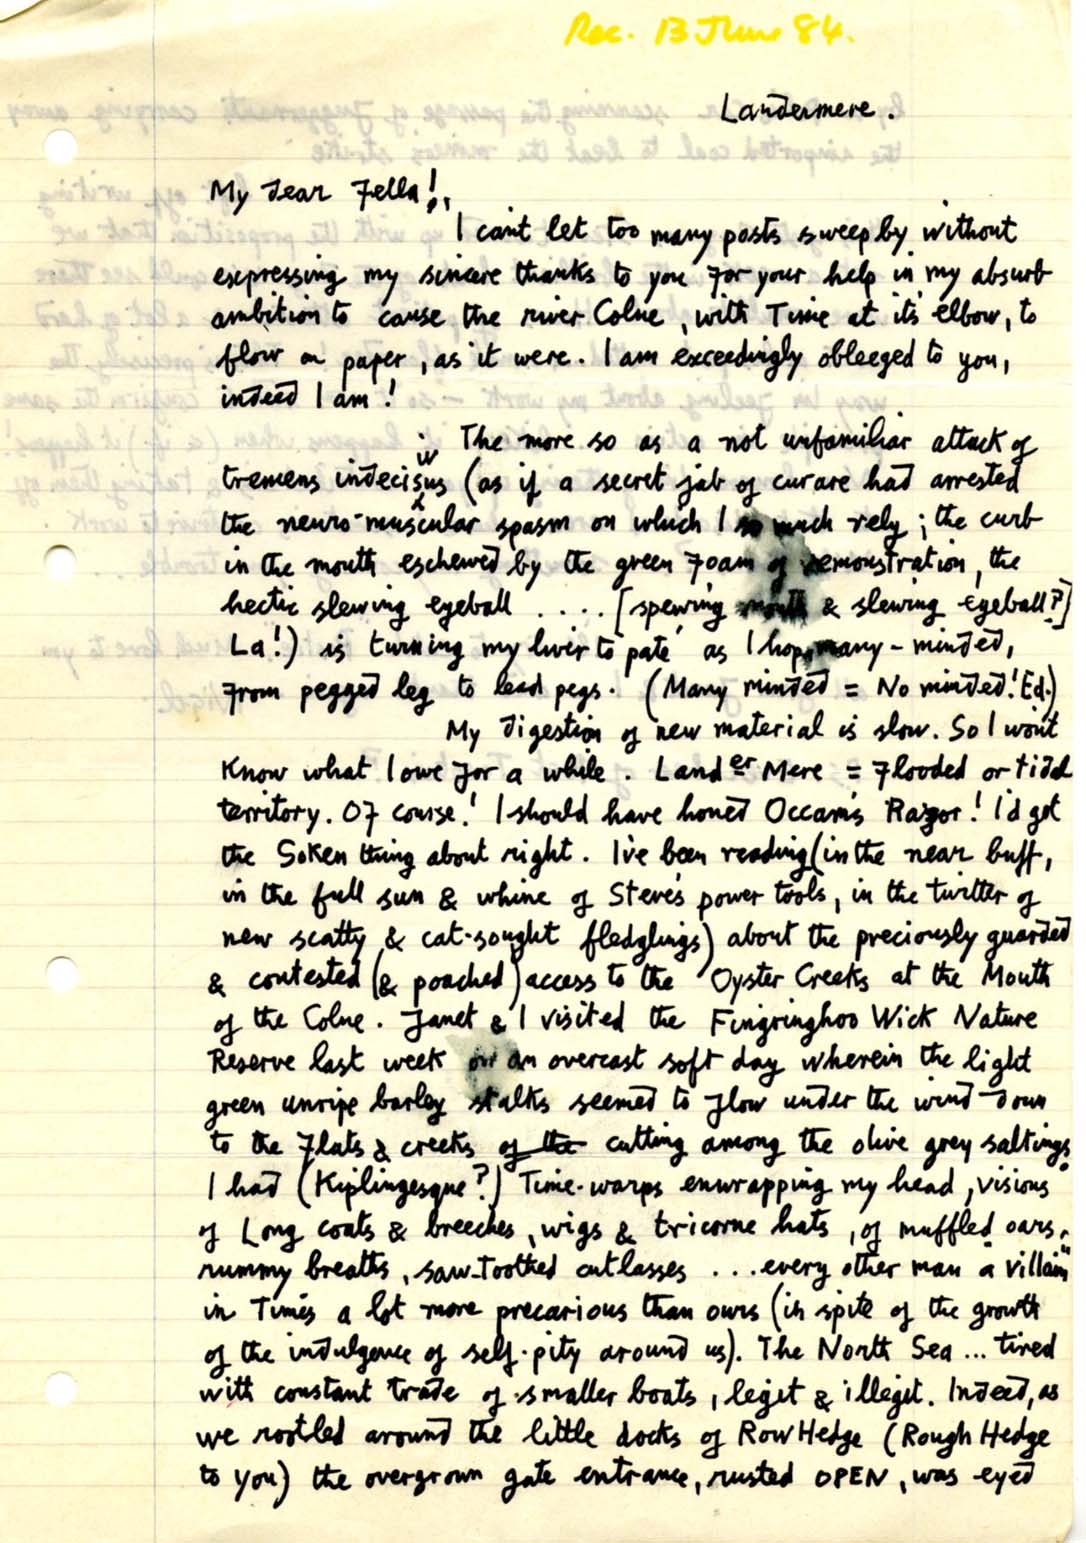 Rec. 13 June 84.
Landermere.
My dear Fella!,
I can't let too many posts sweep by without
expressing my sincere thanks to you for your help in my absurb
ambition to cause the river Colne, with Time at it's elbow, to
flow on paper, as it were. I am exceedingly obleeged to you,
indeed I am!
The more so as a not unfamiliar attack of
tremens indecisivus (as if a secret jab of curare had arrested
the neuro-muscular spasm on which I so much rely; the curb
in the mouth eschewed by the green foam of remonstration, the
hectic slewing eyeball .... [spewing mouth & slewing eyeball?]
La!) is turning my liver to paté as I hop, many-minded,
from pegged leg to lead pegs. (Many minded = No minded! Ed.)
My digestion of new material is slow. So I won't
know what I owe for a while. Land er Mere = flooded or tidal
territory. Of course! I should have honed Occam's Razor! I'd got
the Soken thing about right. I've been reading (in the near buff,
in the full sun & whine of Steve's power tools, in the twitter of
new scatty & cat-sought fledglings) about the preciously guarded
& contested (& poached) access to the Oyster Creeks at the Mouth
of the Colne. Janet & I visited the Fingringhoo Wick Nature
Reserve last week on an overcast soft day wherein the light
green unripe barley stalks seemed to flow under the wind down
to the flats & creeks of the cutting among the olive grey saltings.
I had (Kiplingesque?) Time-warps enwrapping my head, visions
of Long coats & breeches, wigs & tricorne hats, of muffled oars,
rummy breaths, saw-toothed cutlasses ... every other man a "villain"
in Times a lot more precarious than ours (in spite of the growth
of the indulgence of self-pity around us). The North Sea ... tired
with constant trade of smaller boats, legit & illegit. Indeed, as
we rootled around the little docks of Row Hedge (Rough Hedge
to you) the overgrown gate entrance, rusted OPEN, was eyed